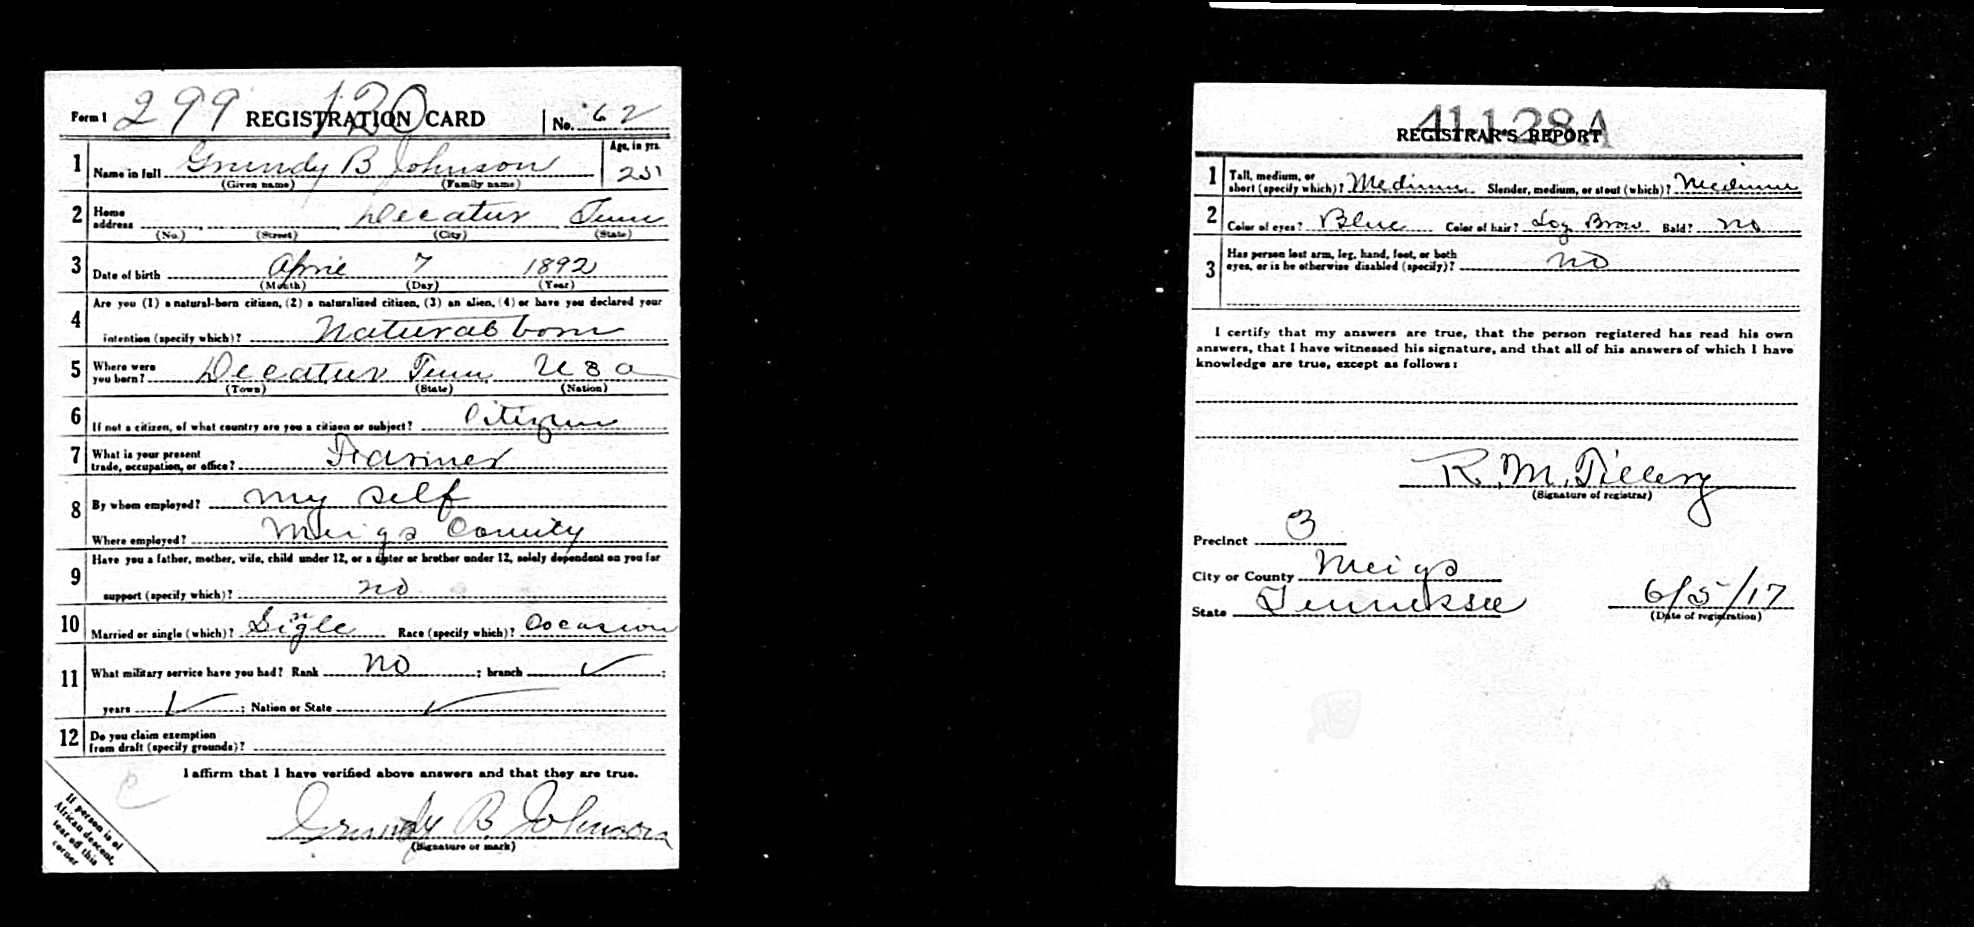 Form 1 299 REGISTRATION CARD 120 No. 62
1 Name in full Grundy B Johnson Age, in yrs. 25
(Given name) (Family name)
2 Home address Decatur Tenn
(No.) (Street) (City) (State)
3 Date of birth April 7 1892
(Month) (Day) (Year)
4 Are you (1) a natural-born citizen, (2) a naturalized citizen, (3) an alien, (4) or have you declared your
intention (specify which)? Natural born
5 Where were you born? Decatur Tenn U S a
(Town) (State) (Nation)
6 If not a citizen, of what country are you a citizen or subject? Citizen
7 What is your present trade, occupation, or office? Farmer
8 By whom employed? my self
Where employed? Meigs County
9 Have you a father, mother, wife, child under 12, or a sister or brother under 12, solely dependent on you for
support (specify which)? no
10 Married or single (which)? Sigle n Race (specify which)? Cocasion
11 What military service have you had? Rank no ; branch ✓ ;
years ✓ ; Nation or State ✓
12 Do you claim exemption from draft (specify grounds)?
I affirm that I have verified above answers and that they are true.
Grundy B. Johnson
(Signature or mark)
If person is of
African descent,
tear off this
corner
C
41128A
REGISTRAR'S REPORT
1 Tall, medium, or short (specify which)? Medium Slender, medium, or stout (which)? Medium
2 Color of eyes? Blue Color of hair? Brow Bald? no
3 Has person lost arm, leg, hand, foot, or both eyes, or is he otherwise disabled (specify)? no
I certify that my answers are true, that the person registered has read his own
answers, that I have witnessed his signature, and that all of his answers of which I have
knowledge are true, except as follows:
R. M. Tillery
(Signature of registrar)
Precinct 3
City or County Meigs
State Tennessee 6/5/17
(Date of registration)